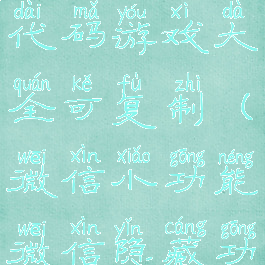 dài mǎ yóu xì dà
代码游戏大
quán kě fù zhì
全可复制（
wēi xìn xiǎo gōng néng
微信小功能
wēi xìn yǐn cáng gōng
微信隐藏功